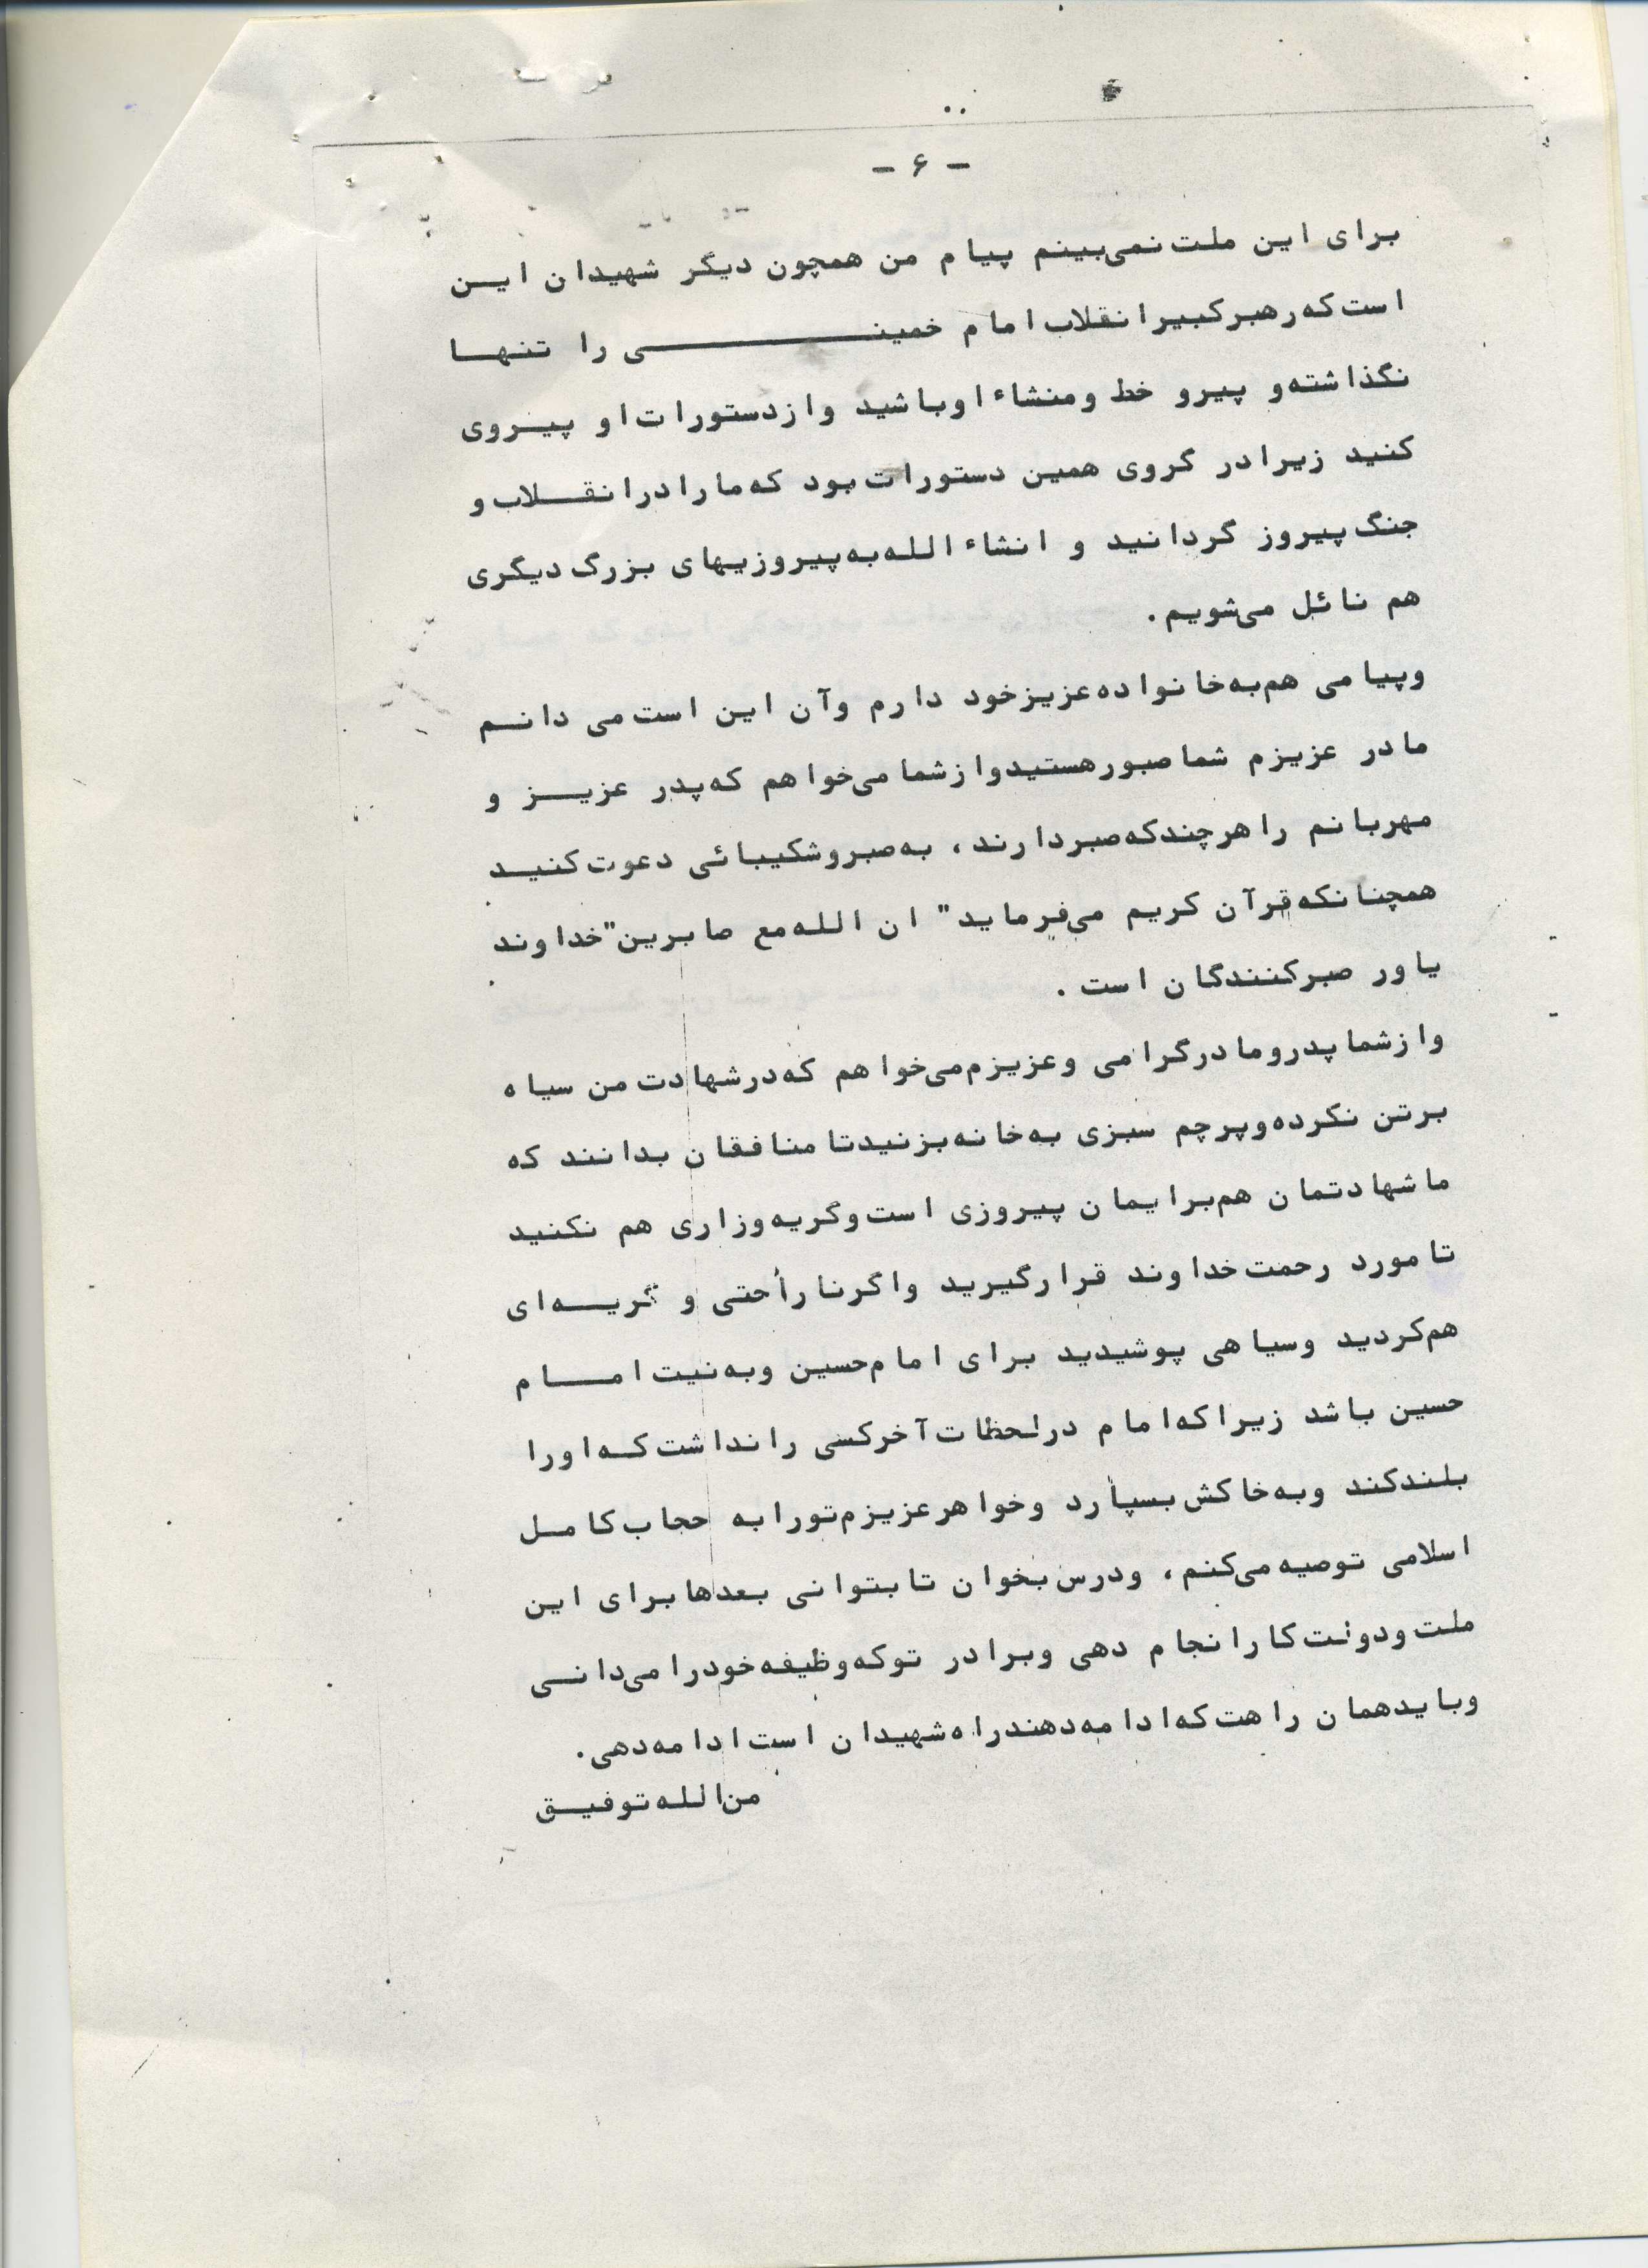 - ۶ -
برای این ملت نمی‌بینم پیام من همچون دیگر شهیدان این
است که رهبر کبیر انقلاب امام خمینی را تنها
نگذاشته و پیرو خط و منشاء او باشید و از دستورات او پیروی
کنید زیرا در گروی همین دستورات بود که ما را در انقلاب و
جنگ پیروز گردانید و انشاء الله به پیروزیهای بزرگ دیگری
هم نائل می‌شویم.
و پیامی هم به خانواده عزیز خود دارم و آن این است می دانم
مادر عزیزم شما صبور هستید و از شما می‌خواهم که پدر عزیز و
مهربانم را هر چند که صبر دارند، به صبر و شکیبائی دعوت کنید
همچنانکه قرآن کریم می‌فرماید " ان الله مع صابرین" خداوند
یاور صبرکنندگان است.
و از شما پدر و مادر گرامی و عزیزم می‌خواهم که در شهادت من سیاه
برتن نکرده و پرچم سبزی به خانه بزنید تا منافقان بدانند که
ما شهادتمان هم برایمان پیروزی است و گریه و زاری هم نکنید
تا مورد رحمت خداوند قرار گیرید و اگر ناراحتی و گریه‌ای
هم کردید و سیاهی پوشیدید برای امام حسین و به نیت امام
حسین باشد زیرا که امام در لحظات آخر کسی را نداشت که او را
بلند کند و به خاکش بسپارد و خواهر عزیزم تو را به حجاب کامل
اسلامی توصیه می‌کنم، و درس بخوان تا بتوانی بعدها برای این
ملت و دولت کار انجام دهی و برادر تو که وظیفه خود را می‌دانی
و باید همان راهت که ادامه دهنده راه شهیدان است ادامه دهی.
من الله توفیق